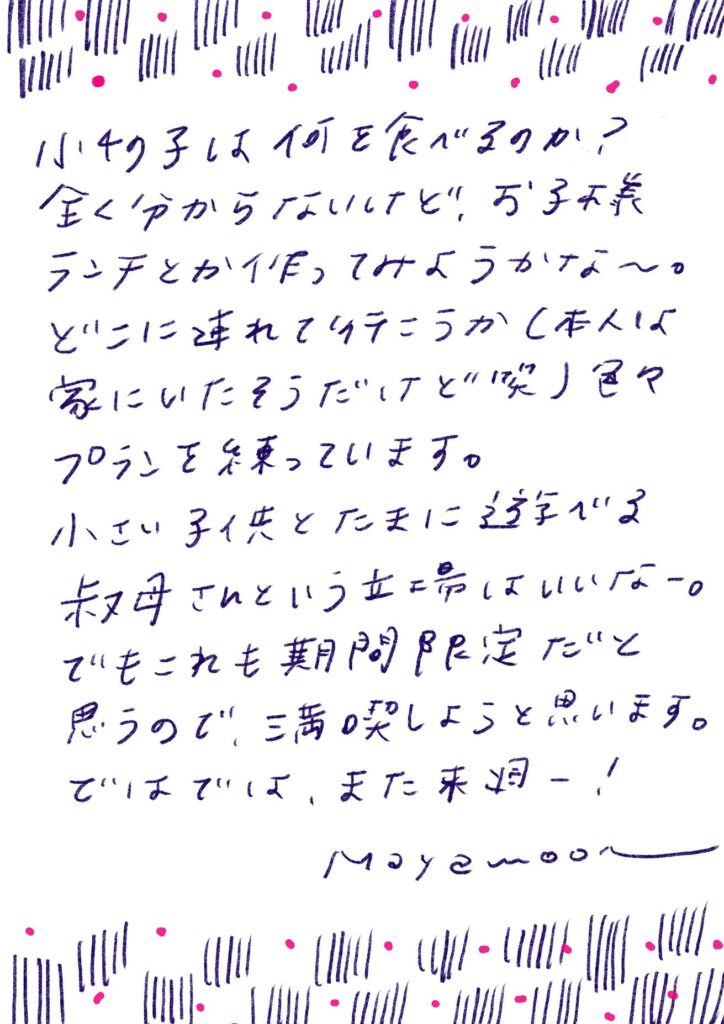 小4の子は何を食べるのか?
全く分からないけど、お子様
ランチとか作ってみようかな〜。
どこに連れて行こうか(本人は
家にいたそうだけど笑)色々
プランを練っています。
小さい子供とたまに遊べる
叔母さんという立場はいいなー。
でもこれも期間限定だと
思うので、満喫しようと思います。
ではでは、また来週ー!
Mayamoon